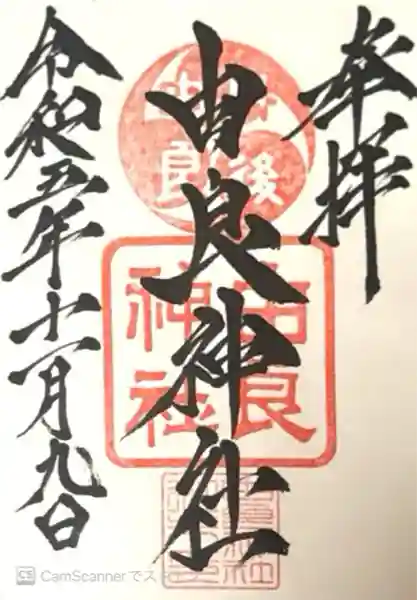 奉拝
由良神社
令和五年十一月九日
丹後
由良
由良
神社
CamScannerでス